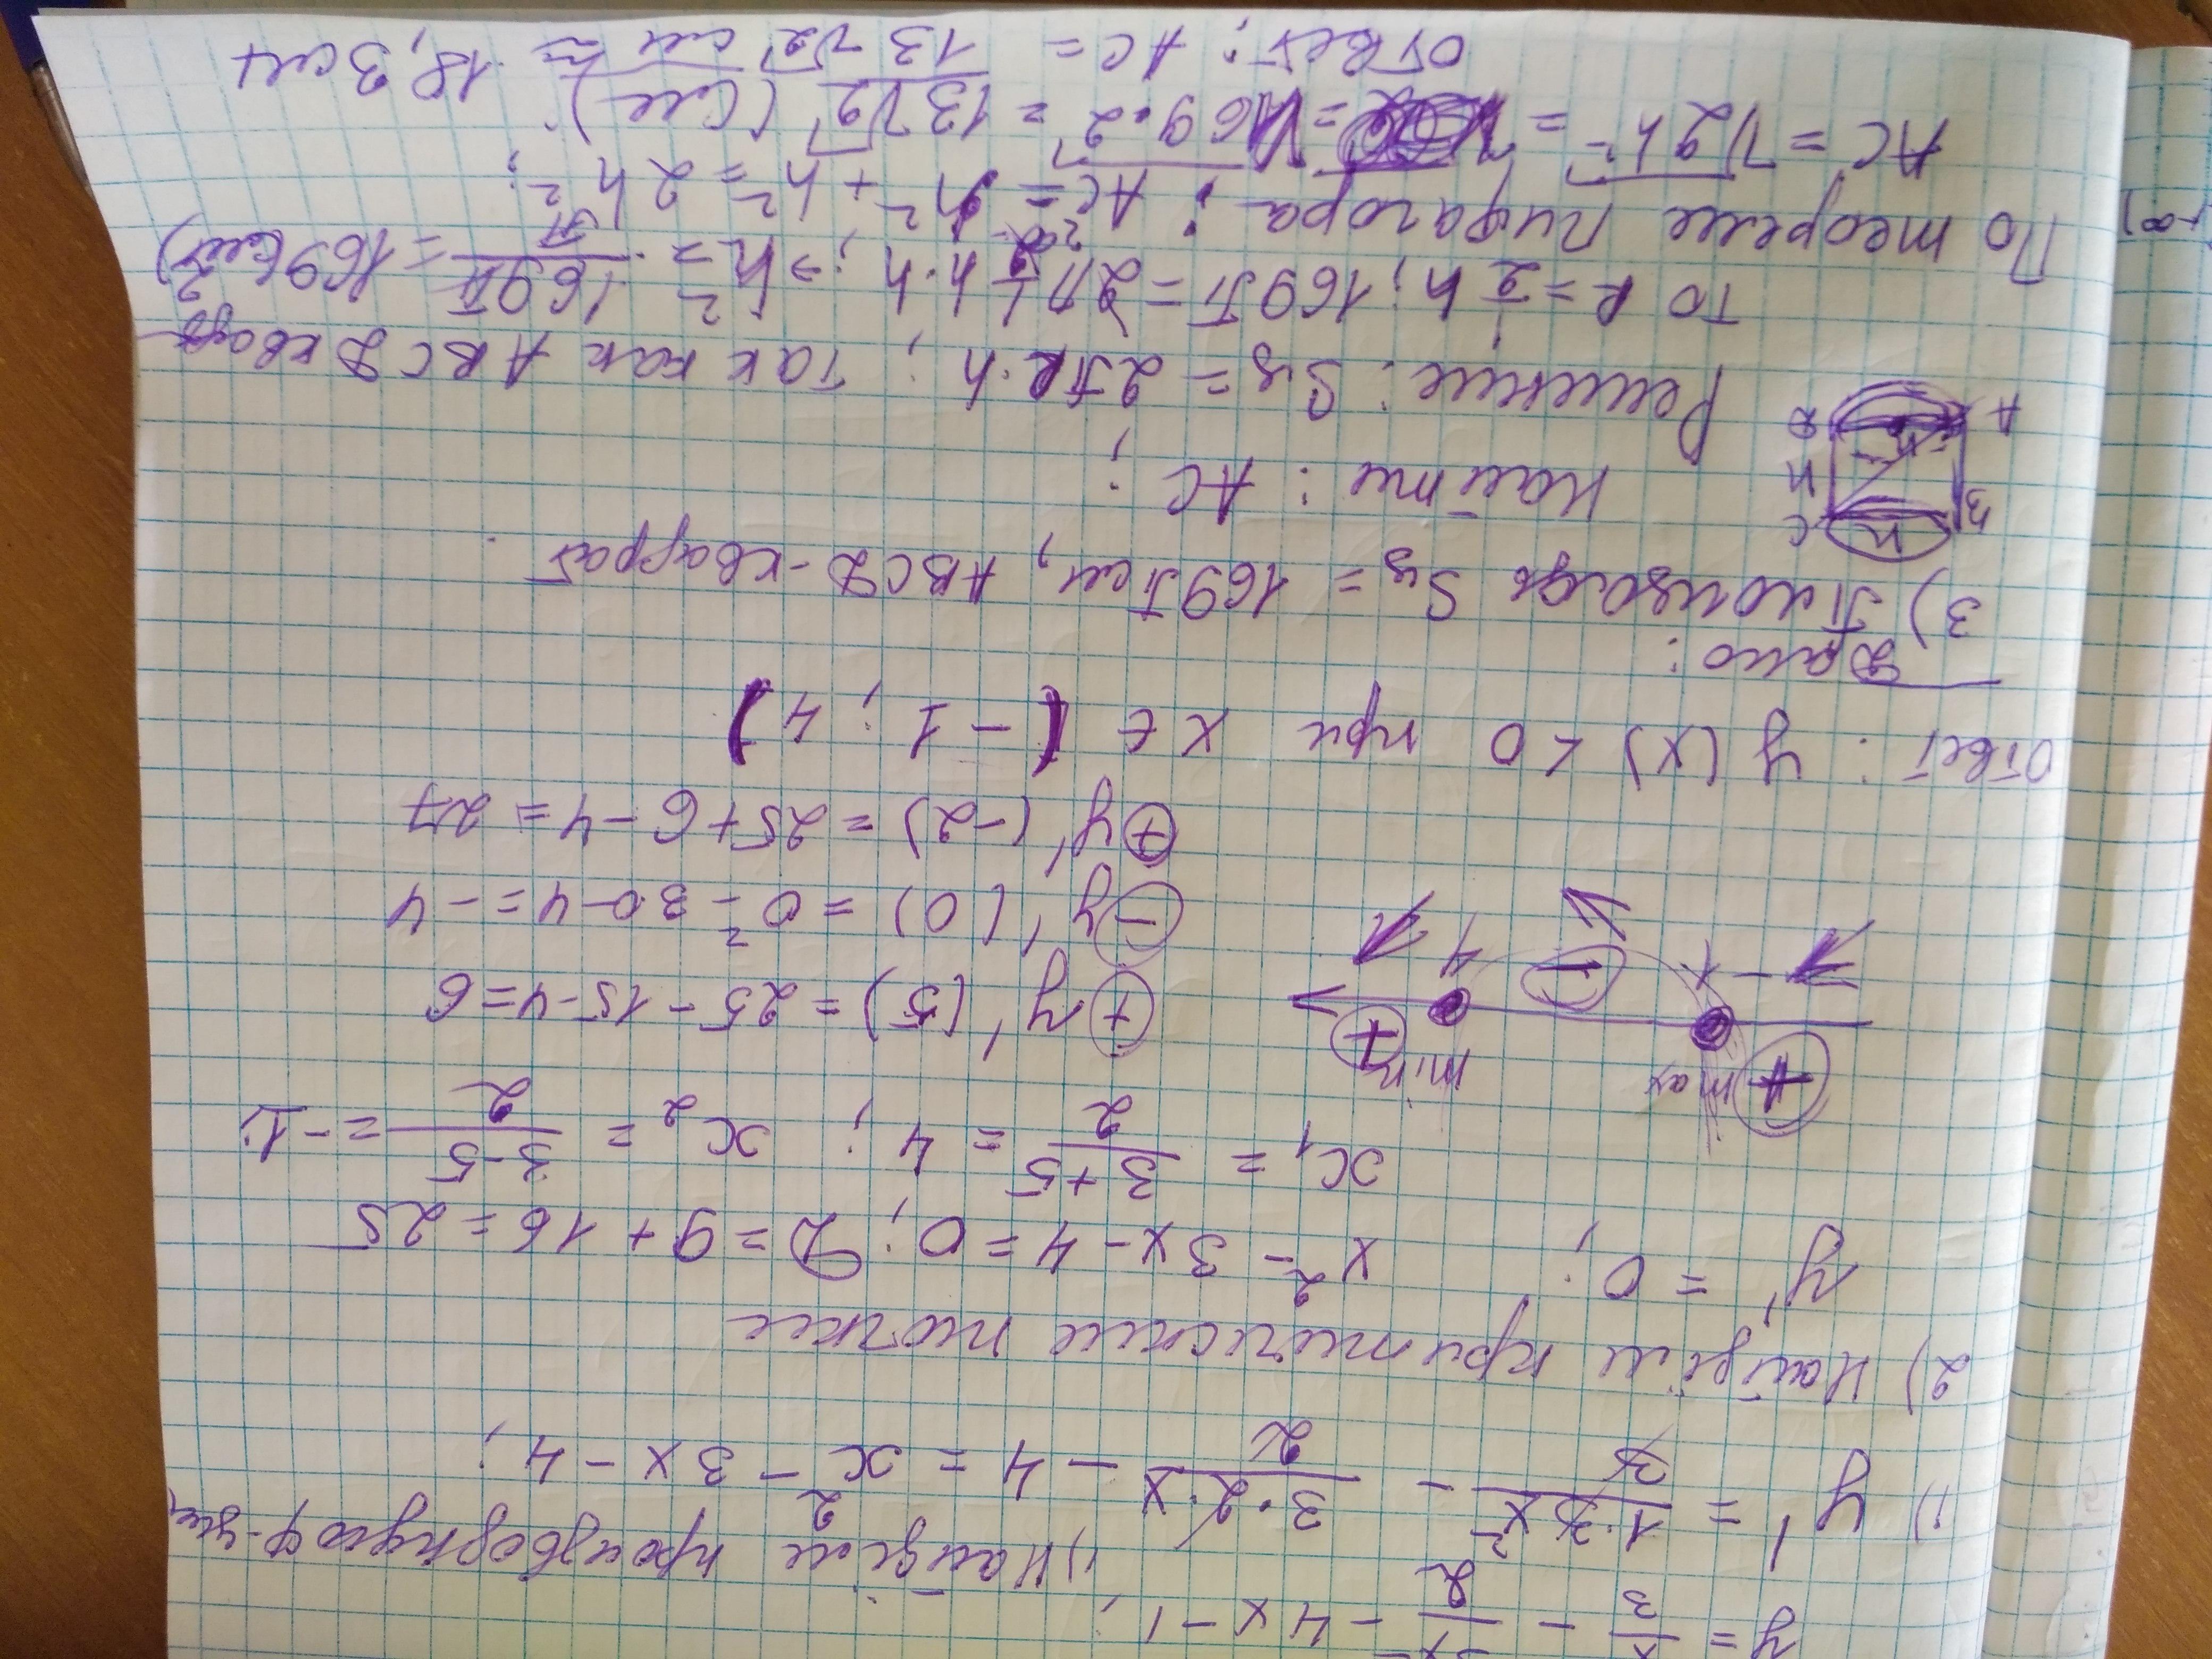 y = x³/3 - 3x²/2 - 4x - 1; 1) Найдём производную ф-ции
1) y' = 1·3x²/3 - 3·2·x/2 - 4 = x² - 3x - 4;
2) Найдём критические точки
y' = 0; x² - 3x - 4 = 0; D = 9 + 16 = 25
x₁ = 3+5/2 = 4; x₂ = 3-5/2 = -1;
+ max - min +
-1 4
+ y'(5) = 25 - 15 - 4 = 6
- y'(0) = 0² - 3·0 - 4 = -4
+ y'(-2) = 25 + 6 - 4 = 27
Ответ: y(x) < 0 при x ∈ (-1; 4)
Дано:
3) Площадь Sц = 169π см, ABCD - квадрат
B C
h
A D
Найти: AC;
Решение: Sц = 2πR·h; так как ABCD квадр
то R = 1/2 h; 169π = 2π 1/2 h·h; ⇒ h² = 169π/π = 169 (см²)
По теореме Пифагора: AC² = h² + h² = 2h²;
AC = √2h² = √169·2 = 13√2 (см)
Ответ: AC = 13√2 см ≈ 18,3 см